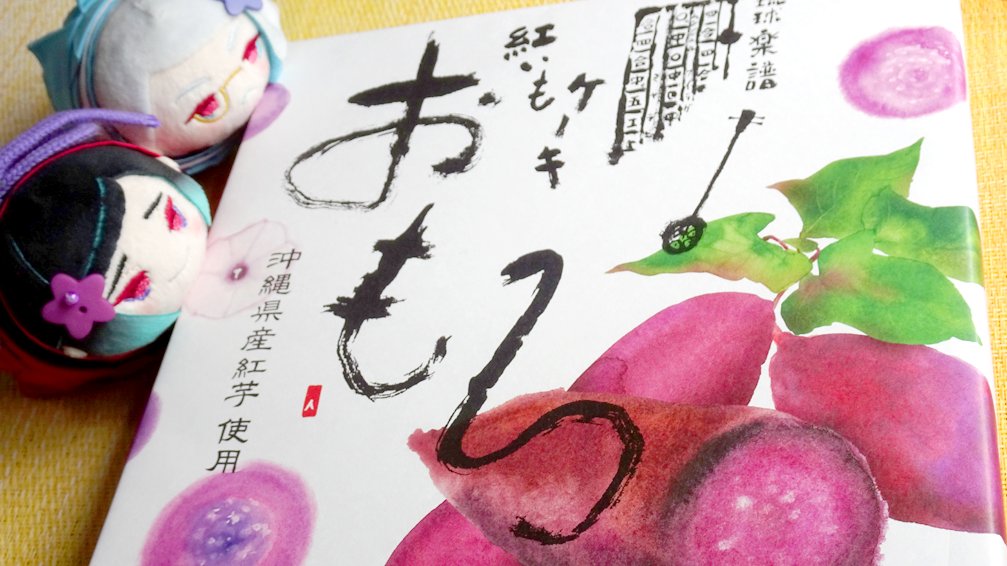 琉球楽譜
紅いも
ケーキ
おもろ
沖縄県産紅芋 使用